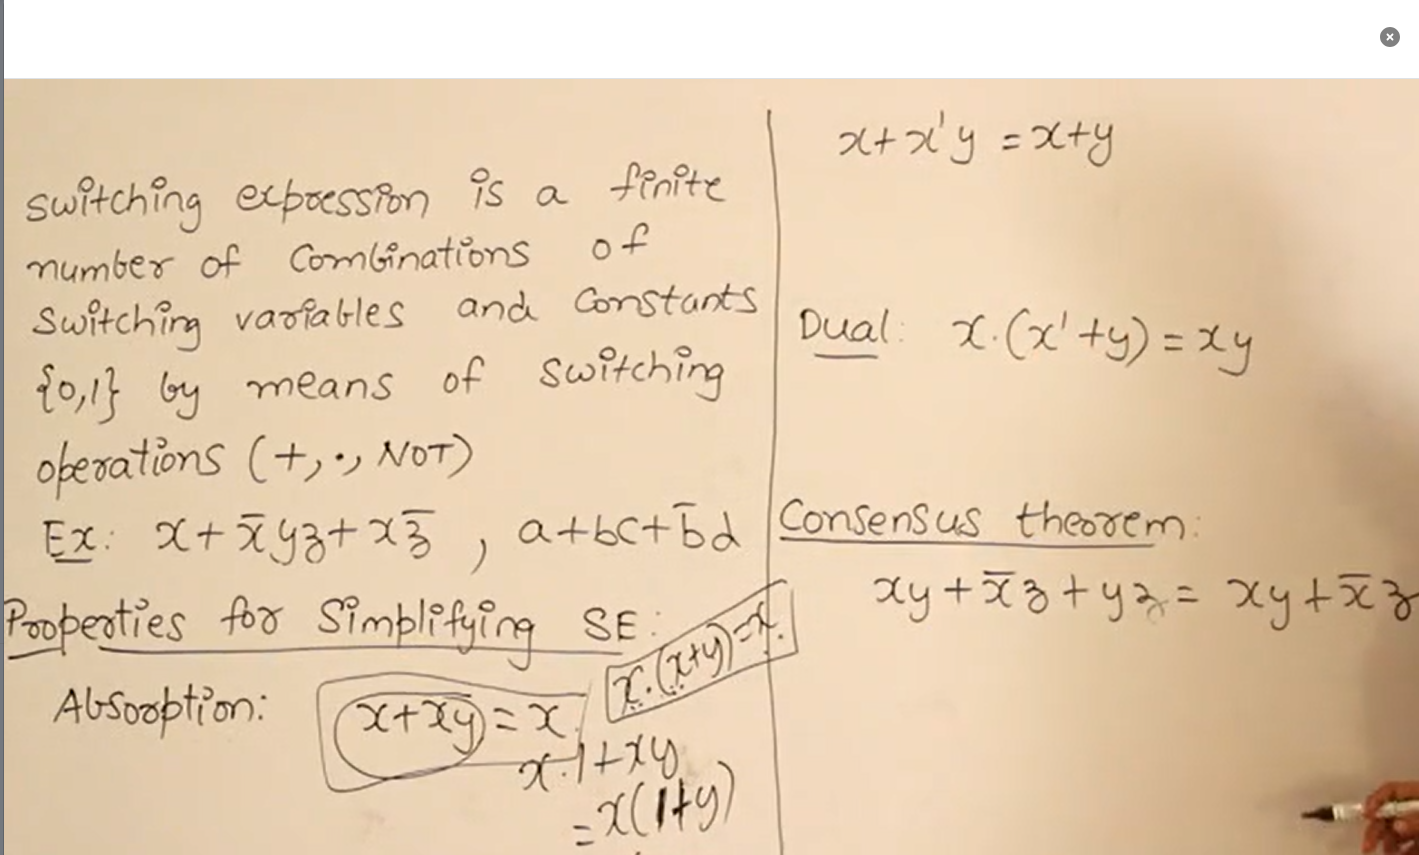 switching expression is a finite
number of combinations of
switching variables and constants
{0,1} by means of switching
operations (+, ·, NOT)
Ex: x + x̅yz + xz̅ , a+bc+b̅d
Properties for Simplifying SE:
Absorption: x+xy = x
x.(x+y)=x.
x.1+xy
=x(1+y)
x+x'y = x+y
Dual: x.(x'+y) = xy
Consensus theorem:
xy + x̅z + yz = xy + x̅z